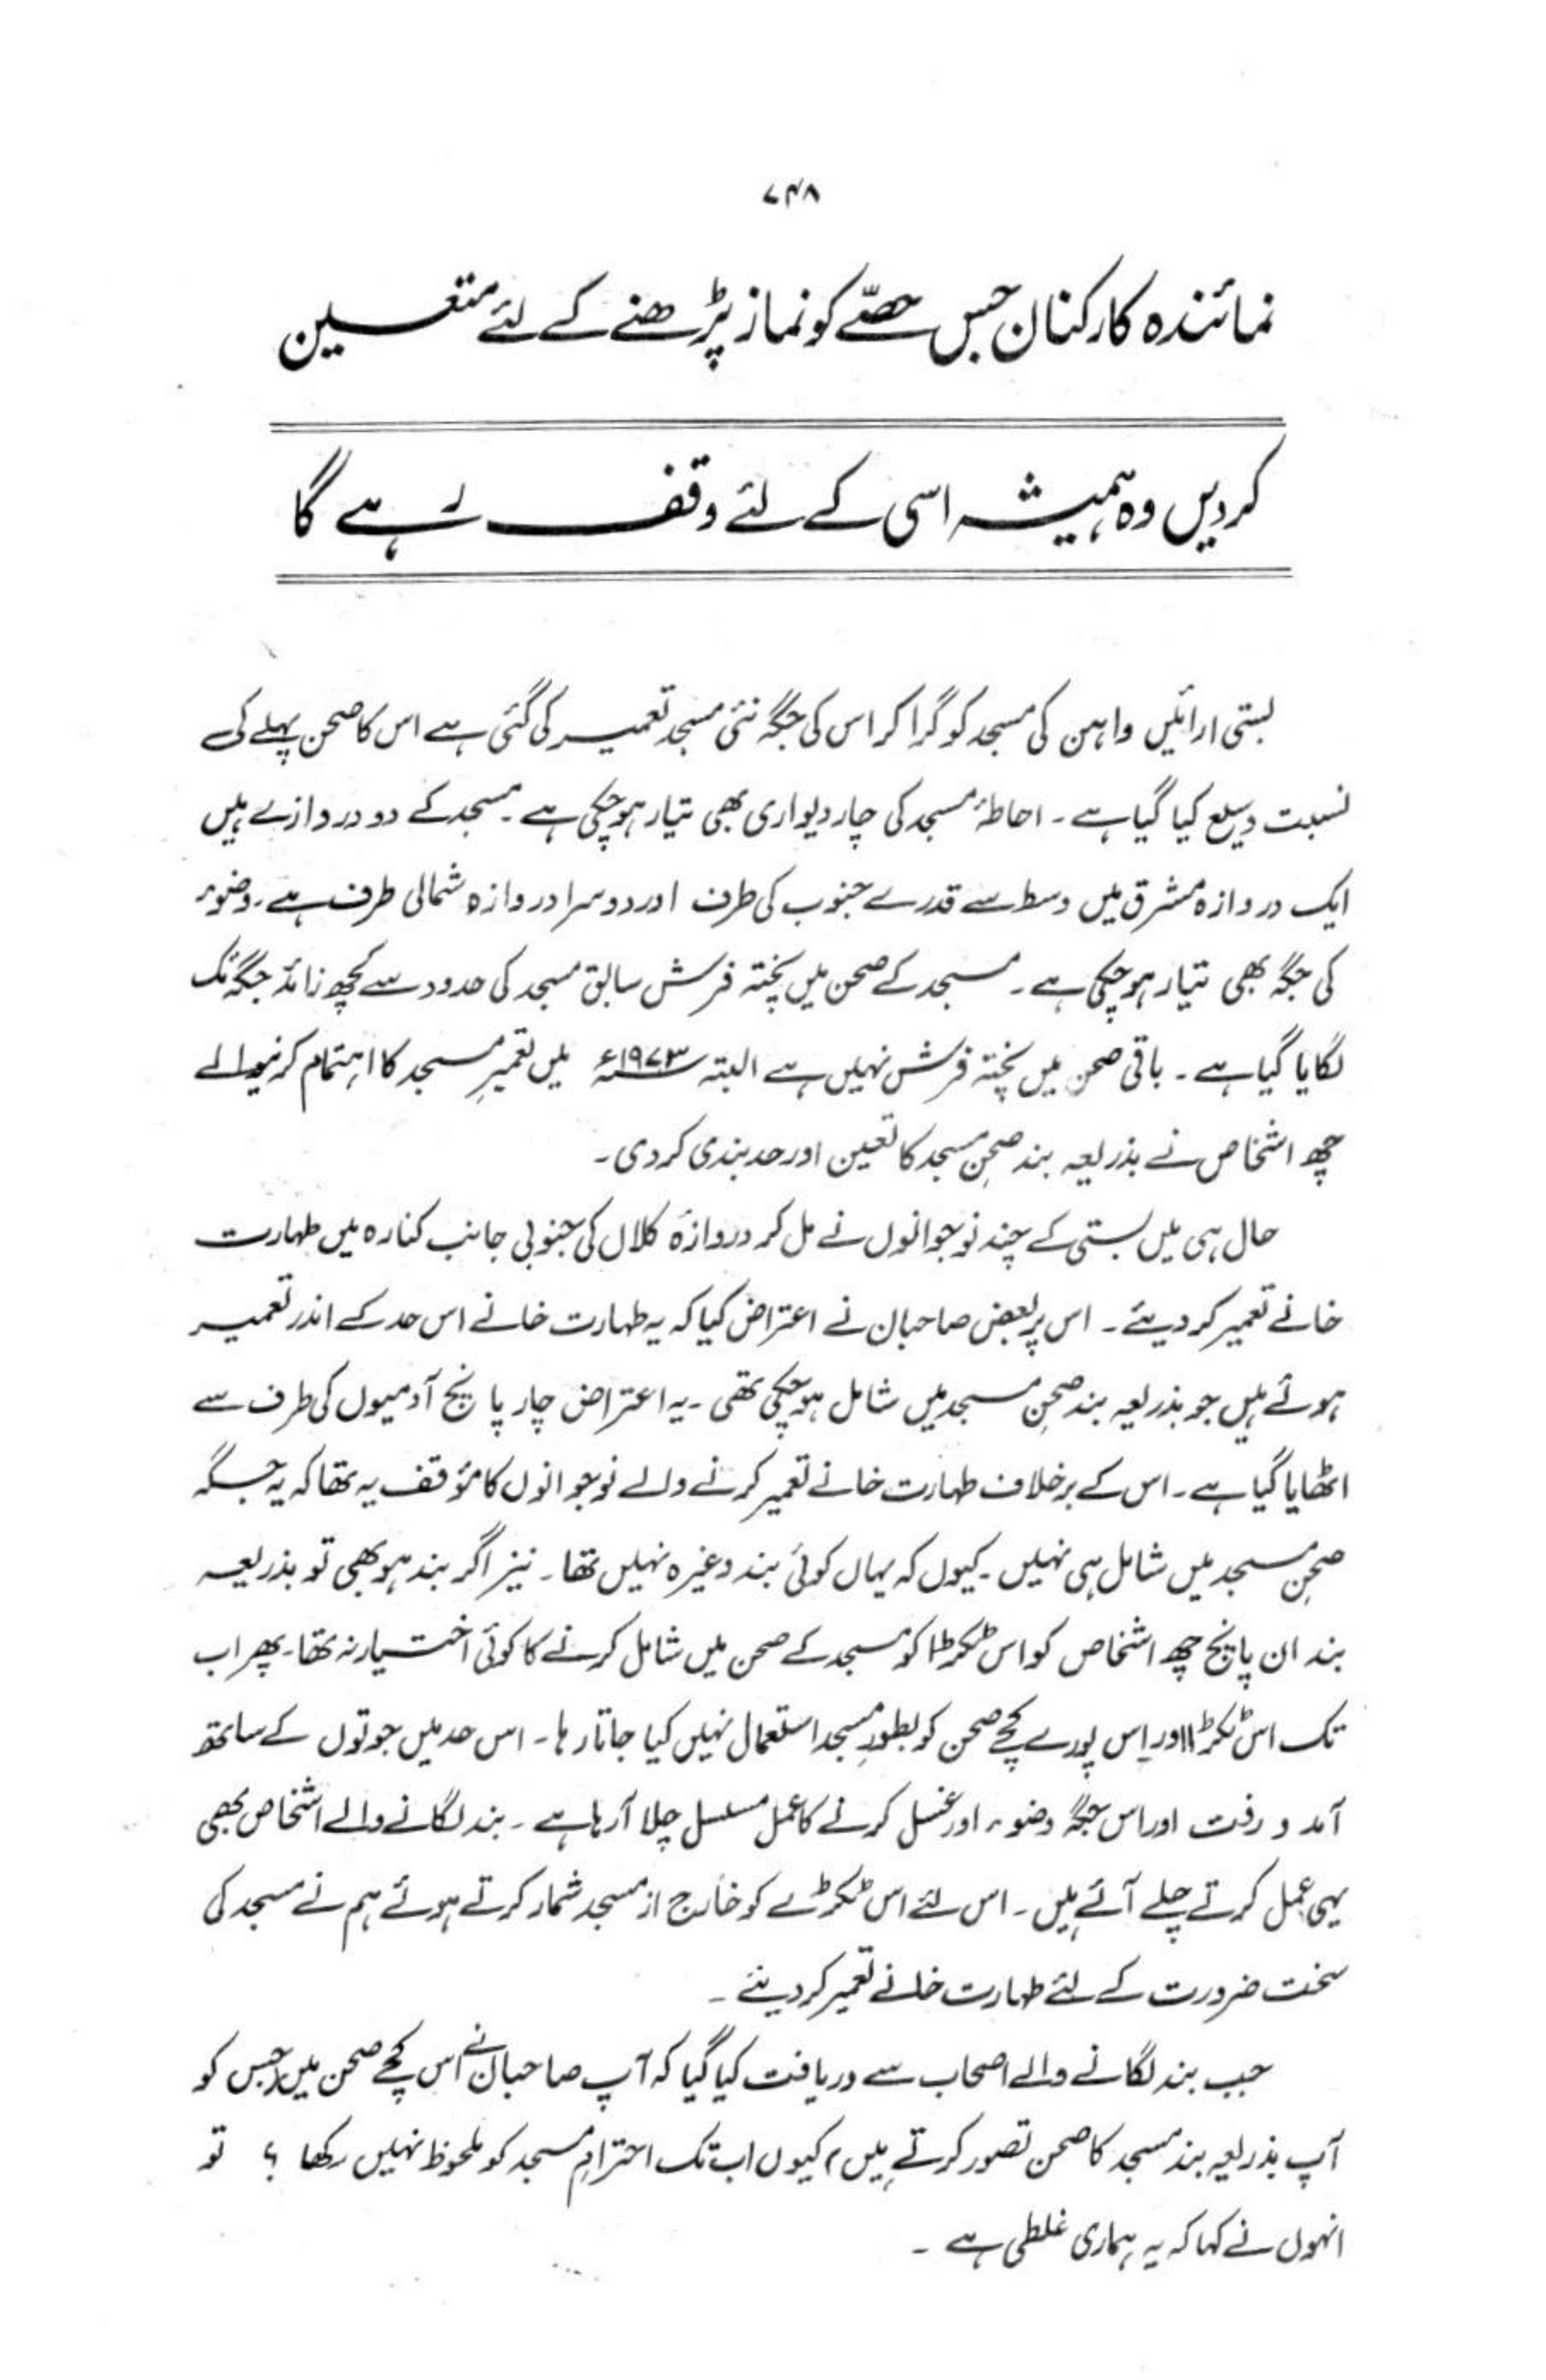 ۷۴۸
نمائندہ کارکنان جس حصّے کو نماز پڑھنے کے لئے متعین
کر دیں وہ ہمیشہ اسی کے لئے وقف رہے گا
بستی ارائیں واہن کی مسجد کو گرا کر اس کی جگہ نئی مسجد تعمیر کی گئی ہے اس کا صحن پہلے کی
نسبت وسیع کیا گیا ہے ۔ احاطۂ مسجد کی چار دیواری بھی تیار ہو چکی ہے ۔ مسجد کے دو دروازے ہیں
ایک دروازہ مشرق میں وسط سے قدرے جنوب کی طرف اور دوسرا دروازہ شمالی طرف ہے ۔ وضوء
کی جگہ بھی تیار ہو چکی ہے ۔ مسجد کے صحن میں پختہ فرش سابق مسجد کی حدود سے کچھ زائد جگہ تک
لگایا گیا ہے ۔ باقی صحن میں پختہ فرش نہیں ہے البتہ ۱۹۷۳ء میں تعمیرِ مسجد کا اہتمام کرنیوالے
چھ اشخاص نے بذریعہ بند صحنِ مسجد کا تعین اور حد بندی کر دی ۔
حال ہی میں بستی کے چند نوجوانوں نے مل کر دروازۂ کلاں کی جنوبی جانب کنارہ میں طہارت
خانے تعمیر کر دیئے ۔ اس پر بعض صاحبان نے اعتراض کیا کہ یہ طہارت خانے اس حد کے اندر تعمیر
ہوئے ہیں جو بذریعہ بند صحنِ مسجد میں شامل ہو چکی تھی ۔ یہ اعتراض چار پانچ آدمیوں کی طرف سے
اٹھایا گیا ہے ۔ اس کے برخلاف طہارت خانے تعمیر کرنے والے نوجوانوں کا مؤقف یہ تھا کہ یہ جگہ
صحنِ مسجد میں شامل ہی نہیں ۔ کیوں کہ یہاں کوئی بند وغیرہ نہیں تھا ۔ نیز اگر بند ہو بھی تو بذریعہ
بند ان پانچ چھ اشخاص کو اس ٹکڑا کو مسجد کے صحن میں شامل کرنے کا کوئی اختیار نہ تھا ۔ پھر اب
تک اس ٹکڑا اور اس پورے کچے صحن کو بطورِ مسجد استعمال نہیں کیا جاتا رہا ۔ اس حد میں جوتوں کے ساتھ
آمد و رفت اور اس جگہ وضوء اور غسل کرنے کا عمل مسلسل چلا آ رہا ہے ۔ بند لگانے والے اشخاص بھی
یہی عمل کرتے چلے آئے ہیں ۔ اس لئے اس ٹکڑے کو خارج از مسجد شمار کرتے ہوئے ہم نے مسجد کی
سخت ضرورت کے لئے طہارت خانے تعمیر کر دیئے ۔
جب بند لگانے والے اصحاب سے دریافت کیا گیا کہ آپ صاحبان نے اس کچے صحن میں (جس کو
آپ بذریعہ بند مسجد کا صحن تصور کرتے ہیں) کیوں اب تک احترامِ مسجد کو ملحوظ نہیں رکھا ؟ تو
انہوں نے کہا کہ یہ ہماری غلطی ہے ۔